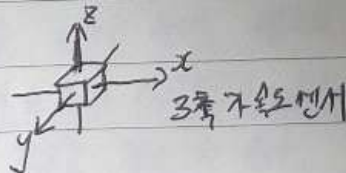 z
x
3축 가속도센서
y